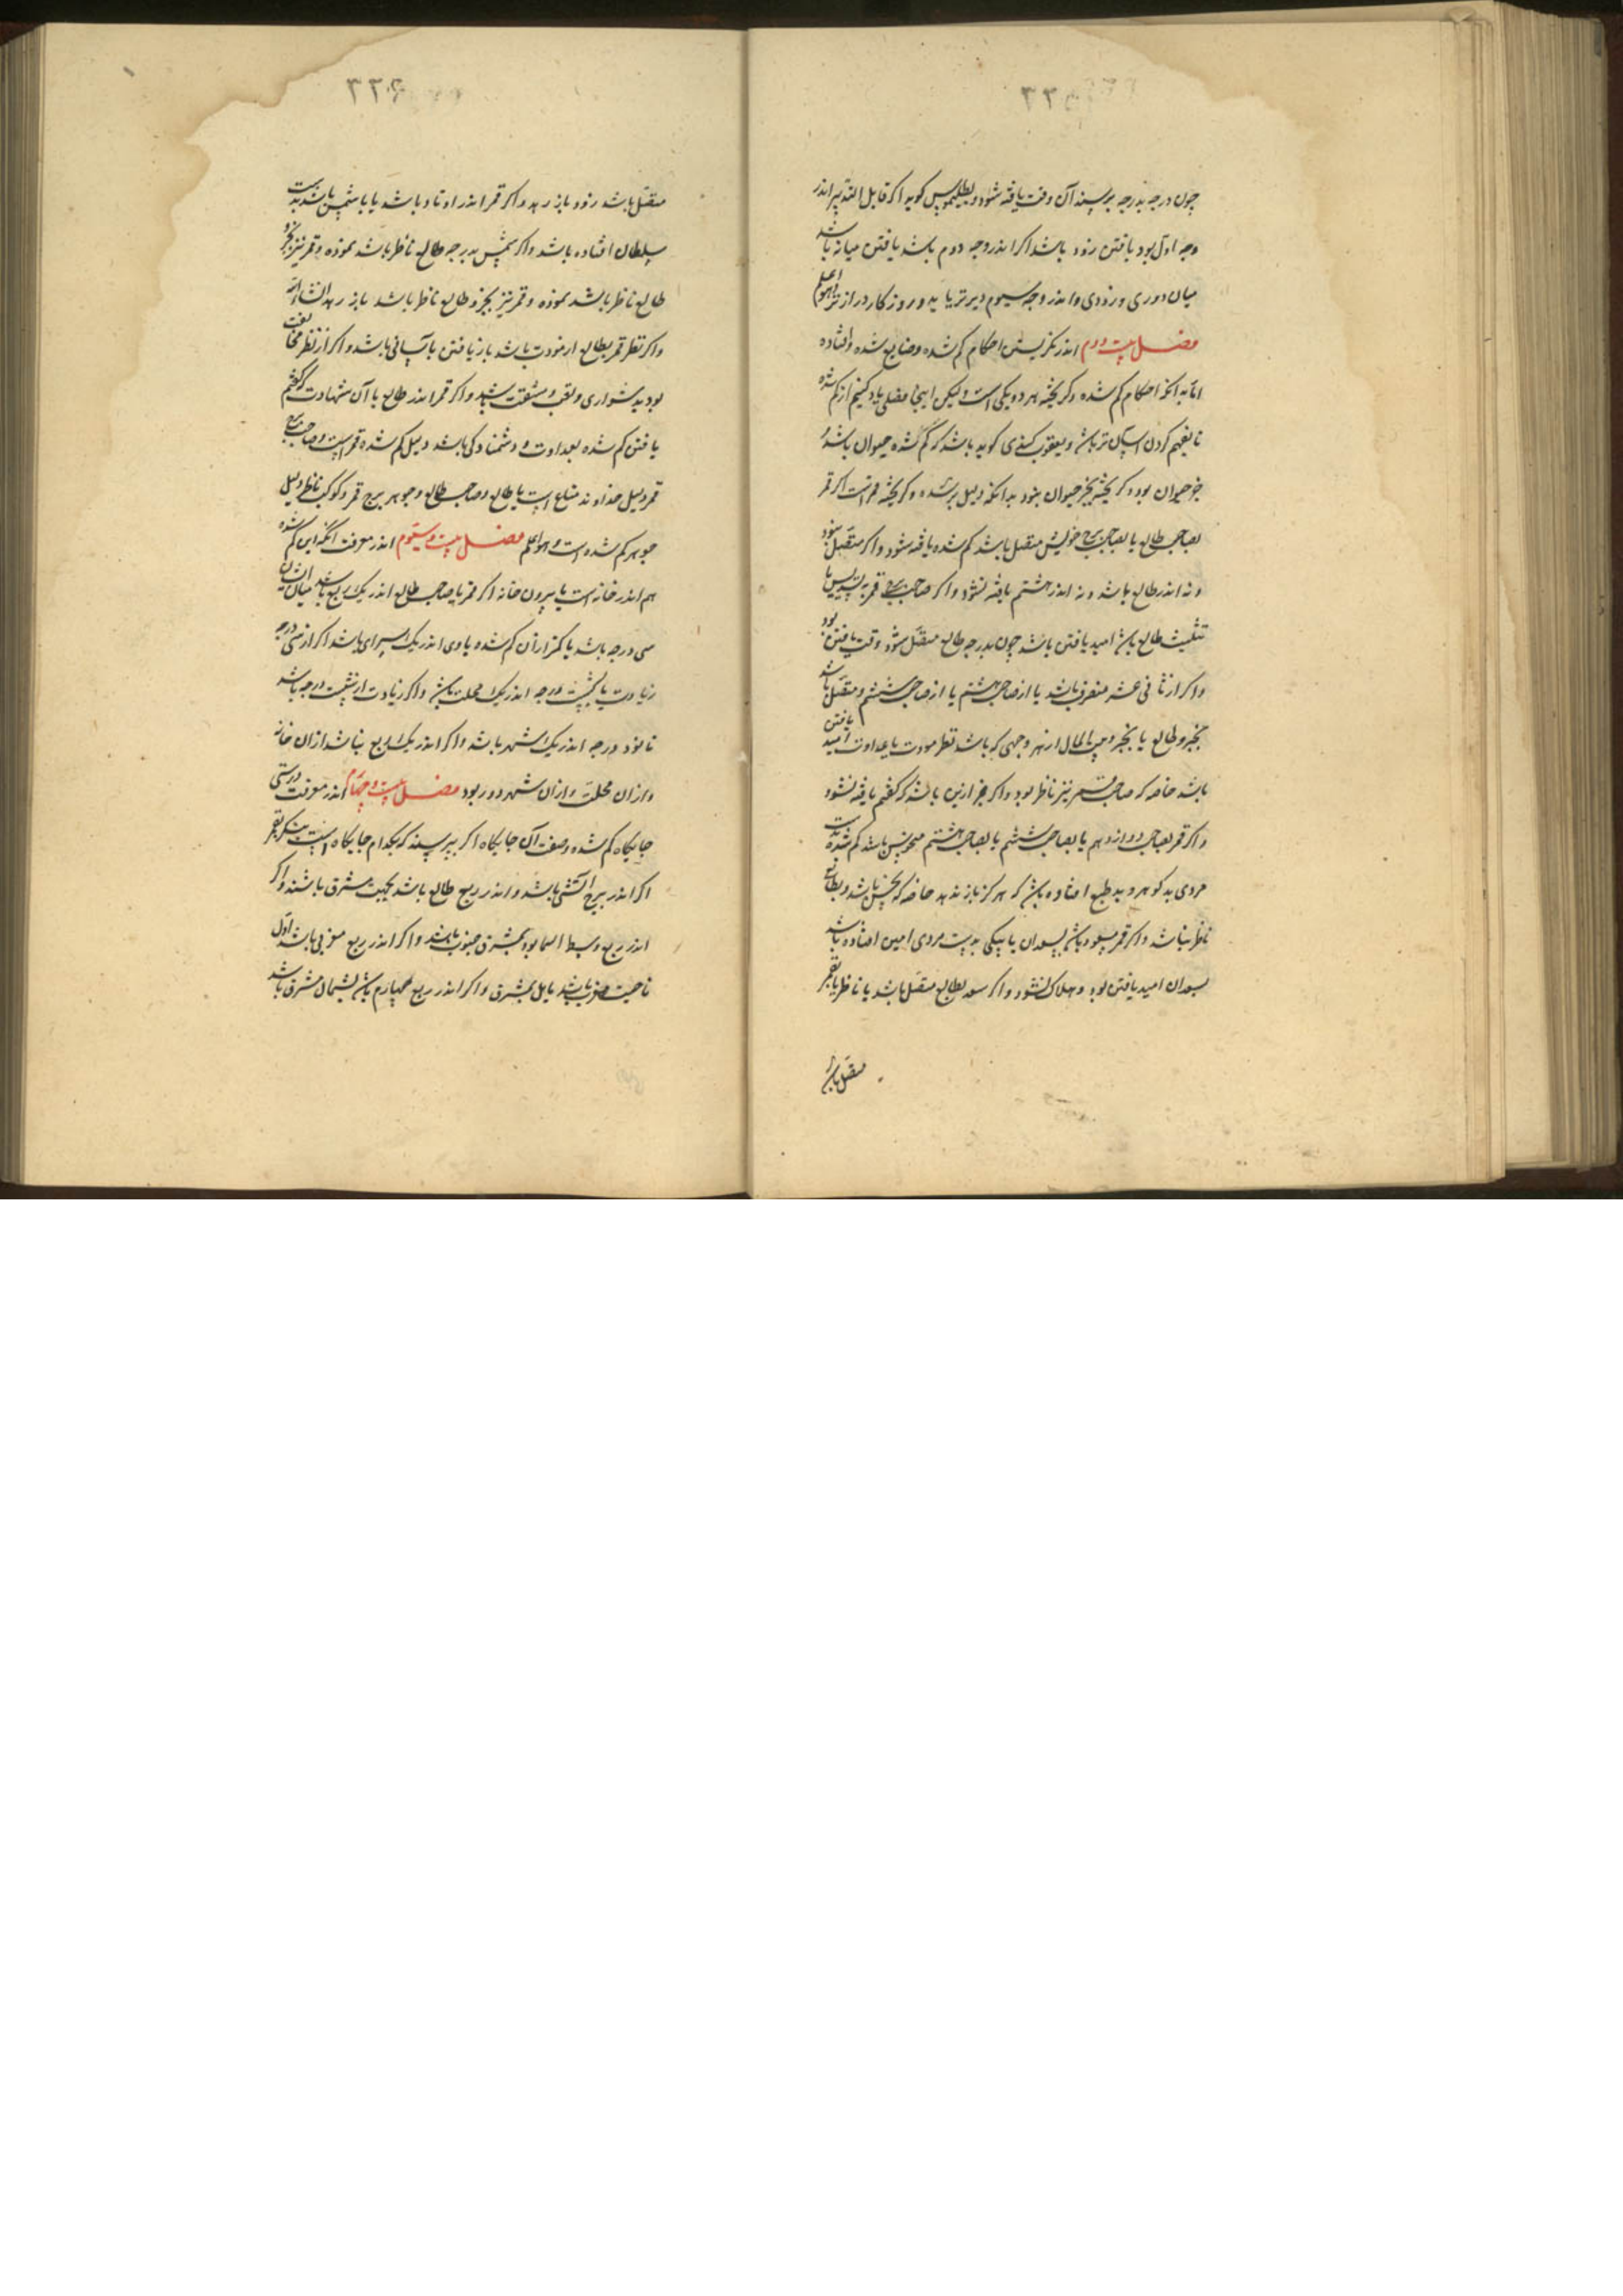 ۳۳۵
چون درجه بدرجه برسند آن وقت یافته شود و بطلیموس کوید اکر قابل التدبیر اندر
وجه اول بود یافتن زود باشد اکر اندر وجه دوم باشد یافتن میانه باشد
میان دوری و زودی و اندر وجه سیوم دیرتر یابد و روزکار درازتر واهو اعلم
فصل بیست و دوم اندر نکریستن احکام کم شده و ضایع شده و افتاده
اما بدانکه احکام کم شده و کریخته هر دو یکی است و لیکن اینجا فصلی یاد کنیم از کم شده
تا تفهیم کردن آسان تر باشد و یعقوب کندی کوید باشد که کم شده حیوان باشد و
جز حیوان بود و کریخته بجز حیوان نبود بدانکه دلیل بر شده و کریخته قمر است اکر قمر
بصاحب طالع یا بصاحب برج خویش متصل باشد کم شده یافته شود و اکر متصل نبود
و نه اندر طالع باشد و نه اندر هشتم یافته نشود و اکر صاحب برج قمر بتسدیس یا
تثلیث طالع باشد امید یافتن باشد چون بدرجه طالع متصل شود وقت یافتن بود
و اکر از ثانی عشر منصرف باشد یا از صاحب هشتم یا از صاحب ششم و متصل باشد
بجزو طالع یا بجزو بیت المال از هر وجهی که باشد نظر مودت یا عداوت امید یافتن
باشد خاصه که صاحب قمر نیز ناظر بود و اکر جز ازین باشد که کفتم یافته نشود
و اکر قمر بصاحب دوازدهم یا بصاحب ششم یا بصاحب هشتم منحوس باشد کم شده بدست
مردی بد کوهر و بد طبع افتاده باشد که هرکز باز ندهد خاصه که نحس باشد و بطالع
ناظر نباشد و اکر قمر مسعود باشد بسعدان یا بیکی بدست مردی امین افتاده باشد
بسعدان امید یافتن بود و هلاک نشود و اکر سعد بطالع متصل باشد یا ناظر یا بقمر
متصل باشد
۳۳۶
متصل باشد زود باز رهد و اکر قمر اندر اوتاد باشد یا با شمس باشد بدست
سلطان افتاده باشد و اکر شمس بدرجه طالع ناظر باشد بموده و قمر نیز بجزو
طالع ناظر باشد بموده و قمر نیز بجزو طالع ناظر باشد باز رهد انشاالله
و اکر نظر قمر بطالع از مودت باشد باز یافتن بآسانی باشد و اکر از نظر مخالفت
بود بدشواری و تعب و مشقت باشد و اکر قمر اندر طالع با آن شهادت که کفتم
یافتن کم شده بعداوت و دشمنادکی باشد دلیل کم شده قمر است و صاحب برج
قمر دلیل خداوند ضایع است یا طالع و صاحب طالع و جوهر برج قمر و کوکب ناظر دلیل
جوهر کم شده است و اهو اعلم فصل بیست و سیوم اندر معرفت آنکه این کم شده
هم اندر خانه است یا بیرون خانه اکر قمر یا صاحب طالع اندر یک ربع باشد میان ایشان
سی درجه باشد یا کمتر از آن کم شده با وی اندر یک سرای باشد اکر از سی درجه
زیادت یا بشصت درجه اندر یک محلت باشد و اکر زیادت از شصت درجه باشد
تا نود درجه اندر یک شهر باشد و اکر اندر یک ربع نباشد از آن خانه
و از آن محلت و از آن شهر دور بود فصل بیست و چهارم اندر معرفت درستی
جایکاه کم شده و صفت آن جایکاه اکر بپرسند که بکدام جایکاه است بنکر بقمر
اکر اندر برج آتشی باشد و اندر ربع طالع باشد بجهت مشرق باشند و اکر
اندر ربع وسط السما بود بمشرق جنوب باشند و اکر اندر ربع مغربی باشد اول
ناحیت مغرب باشد مایل بمشرق و اکر اندر ربع چهارم باشد بشمال مشرق باشد